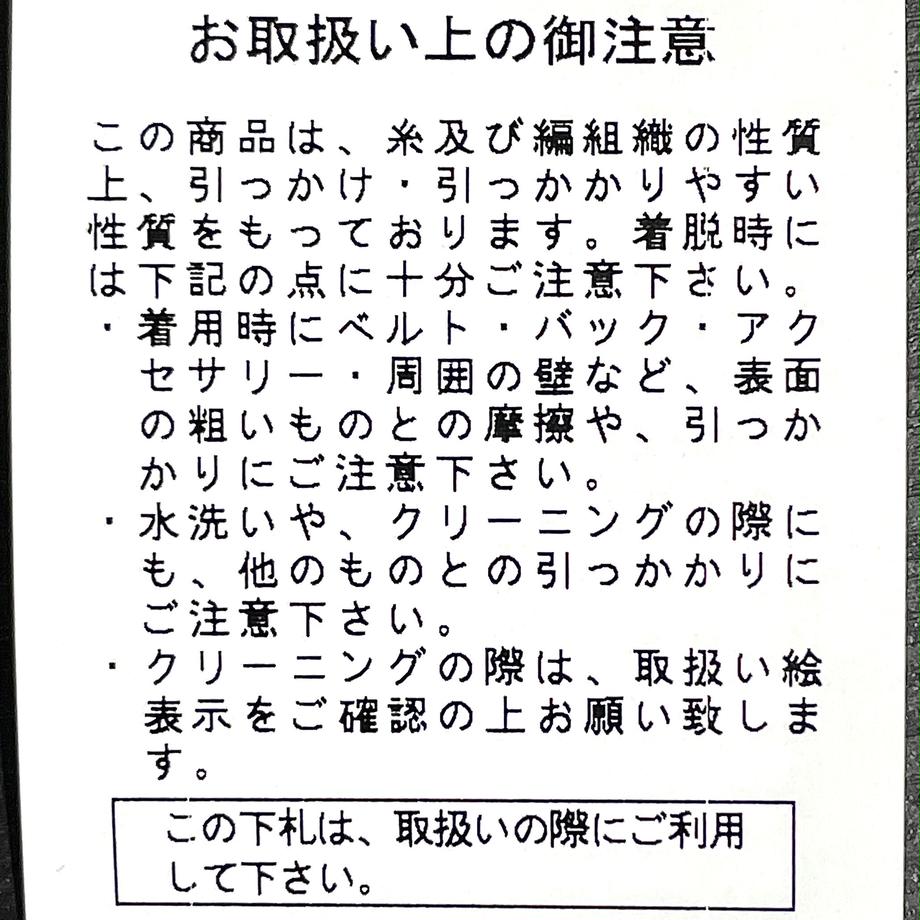 お取扱い上の御注意
この商品は、糸及び編組織の性質
上、引っかけ・引っかかりやすい
性質をもっております。着脱時に
は下記の点に十分ご注意下さい。
・着用時にベルト・バック・アク
セサリー・周囲の壁など、表面
の粗いものとの摩擦や、引っか
かりにご注意下さい。
・水洗いや、クリーニングの際に
も、他のものとの引っかかりに
ご注意下さい。
・クリーニングの際は、取扱い絵
表示をご確認の上お願い致しま
す。
この下札は、取扱いの際にご利用
して下さい。